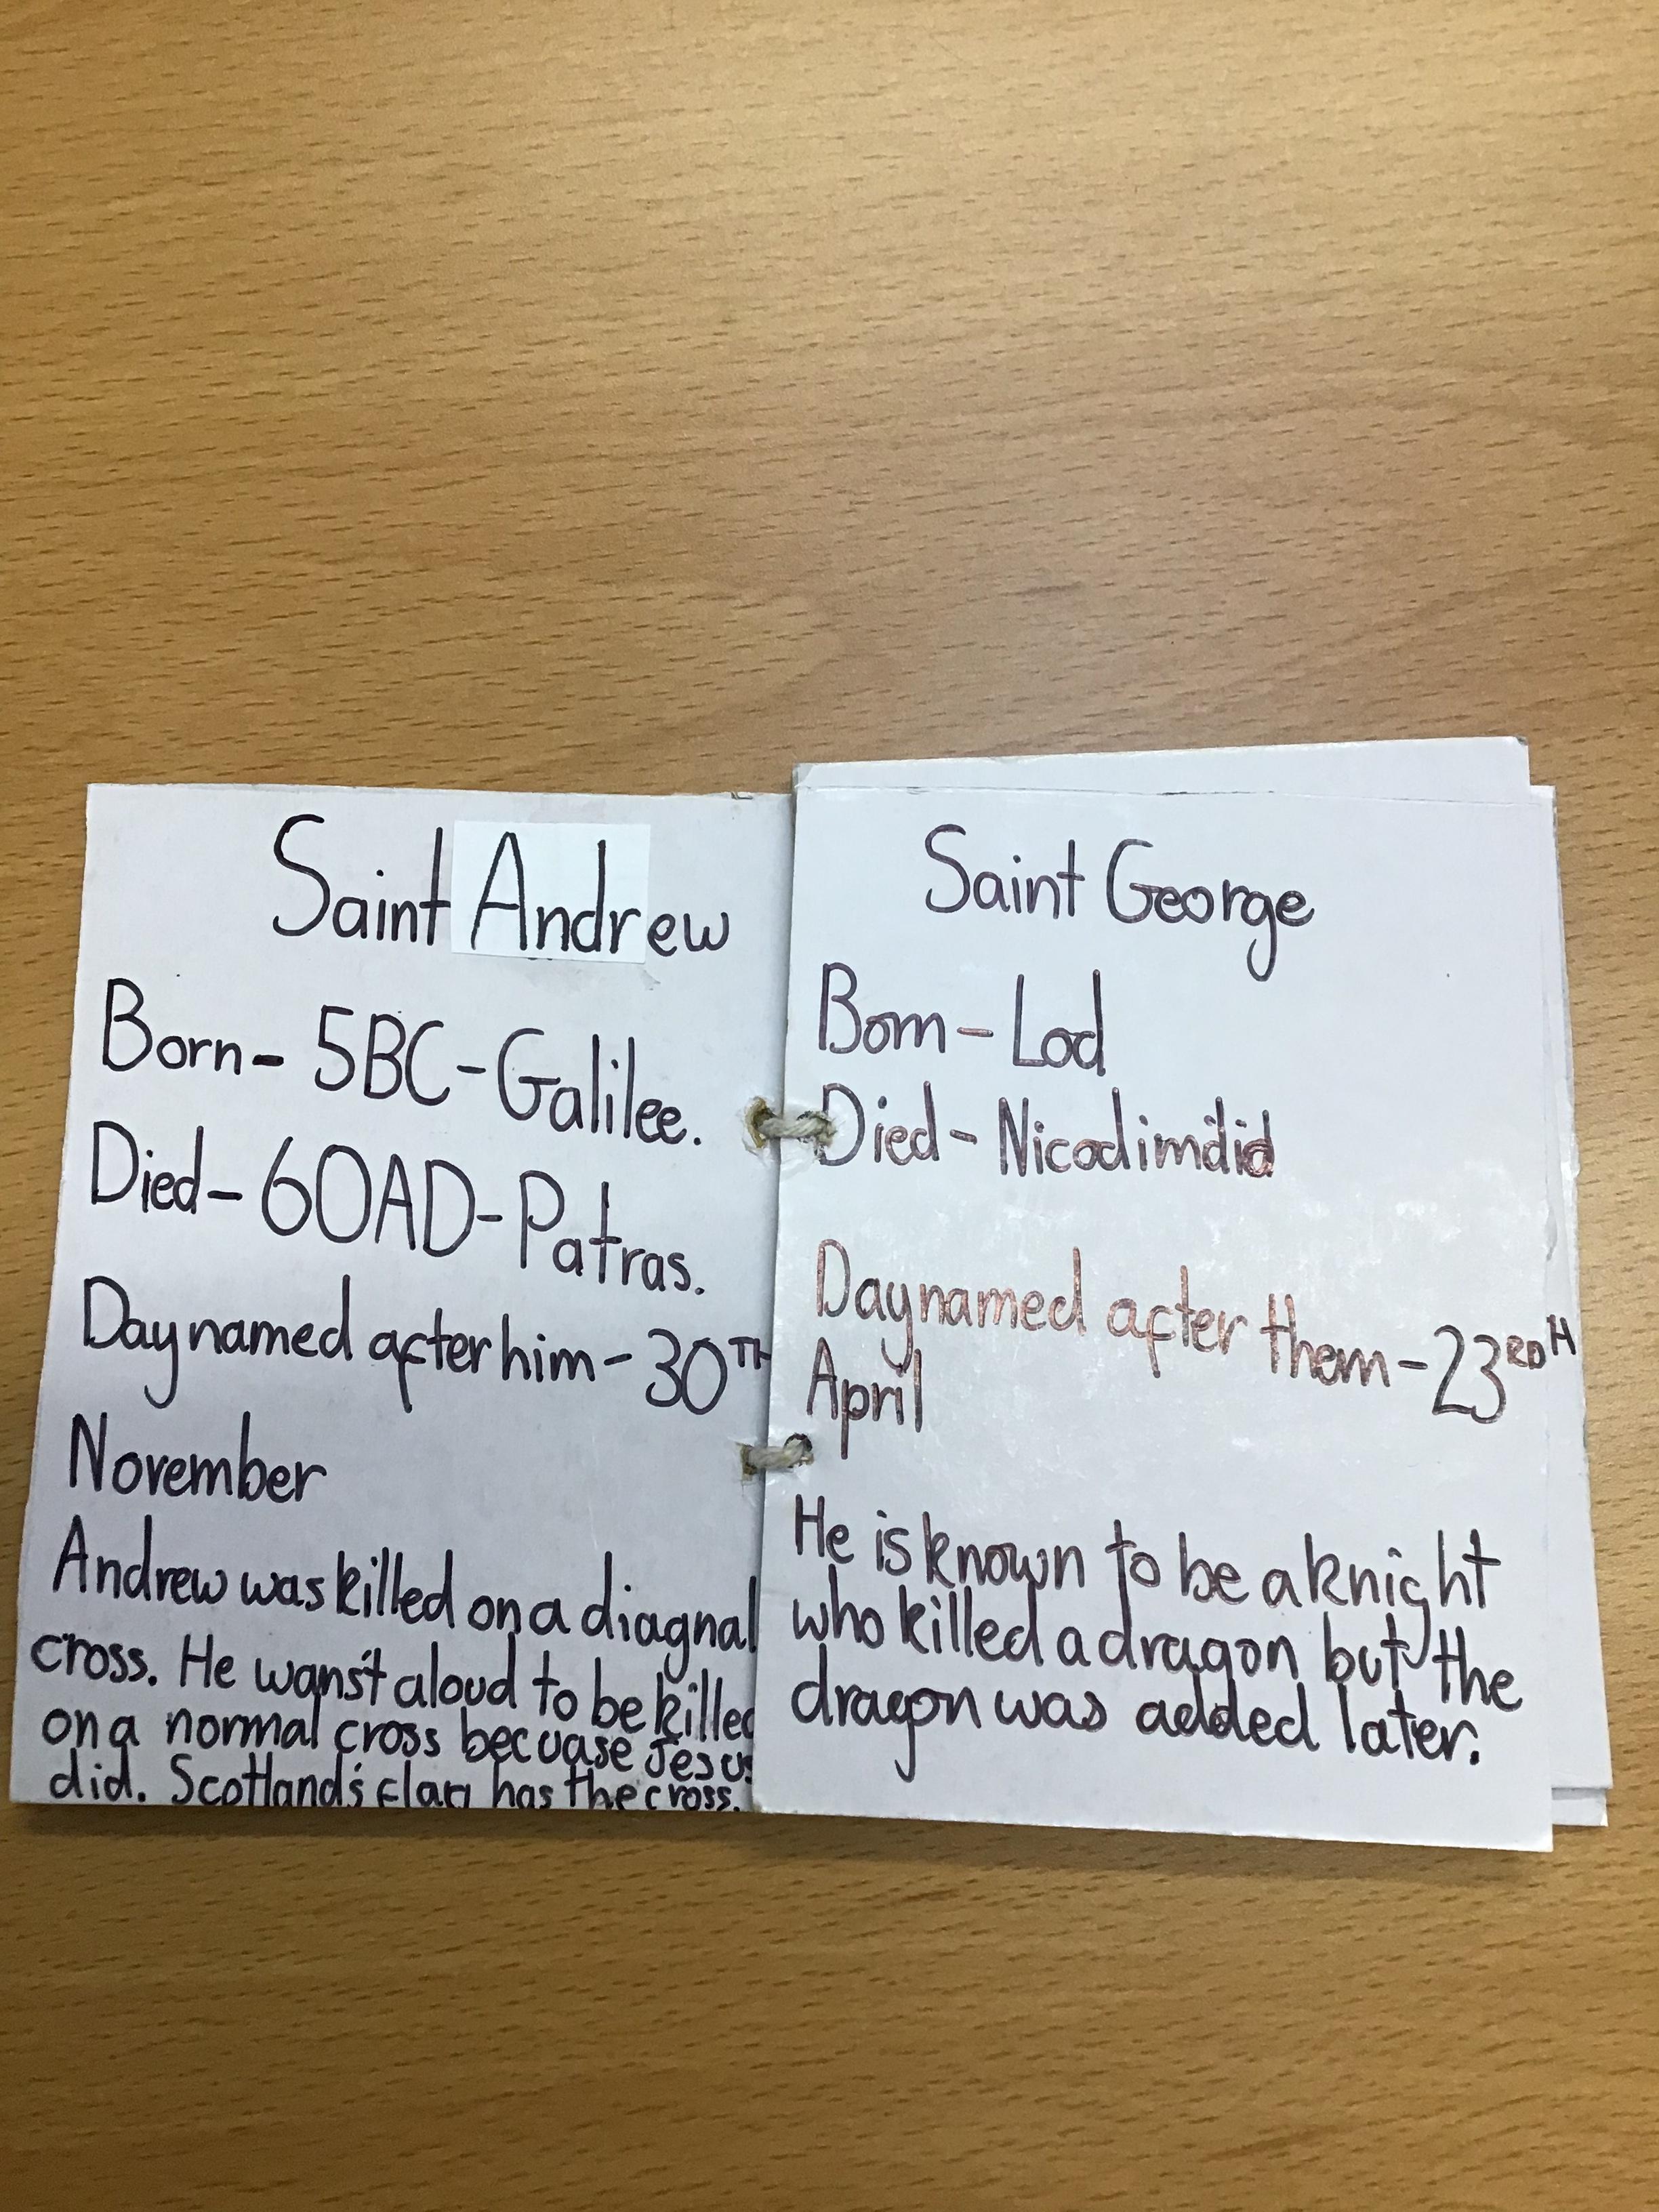 Saint Andrew
Born- 5BC-Galilee.
Died- 60AD-Patras.
Day named after him- 30TH
November
Andrew was killed on a diagnal
cross. He wans't aloud to be killed
on a normal cross becuase Jesus
did. Scotland's flag has the cross.
Saint George
Born- Lod
Died- Nicodimdid
Day named after them-23RDH
April
He is known to be a knight
who killed a dragon but the
dragon was added later.